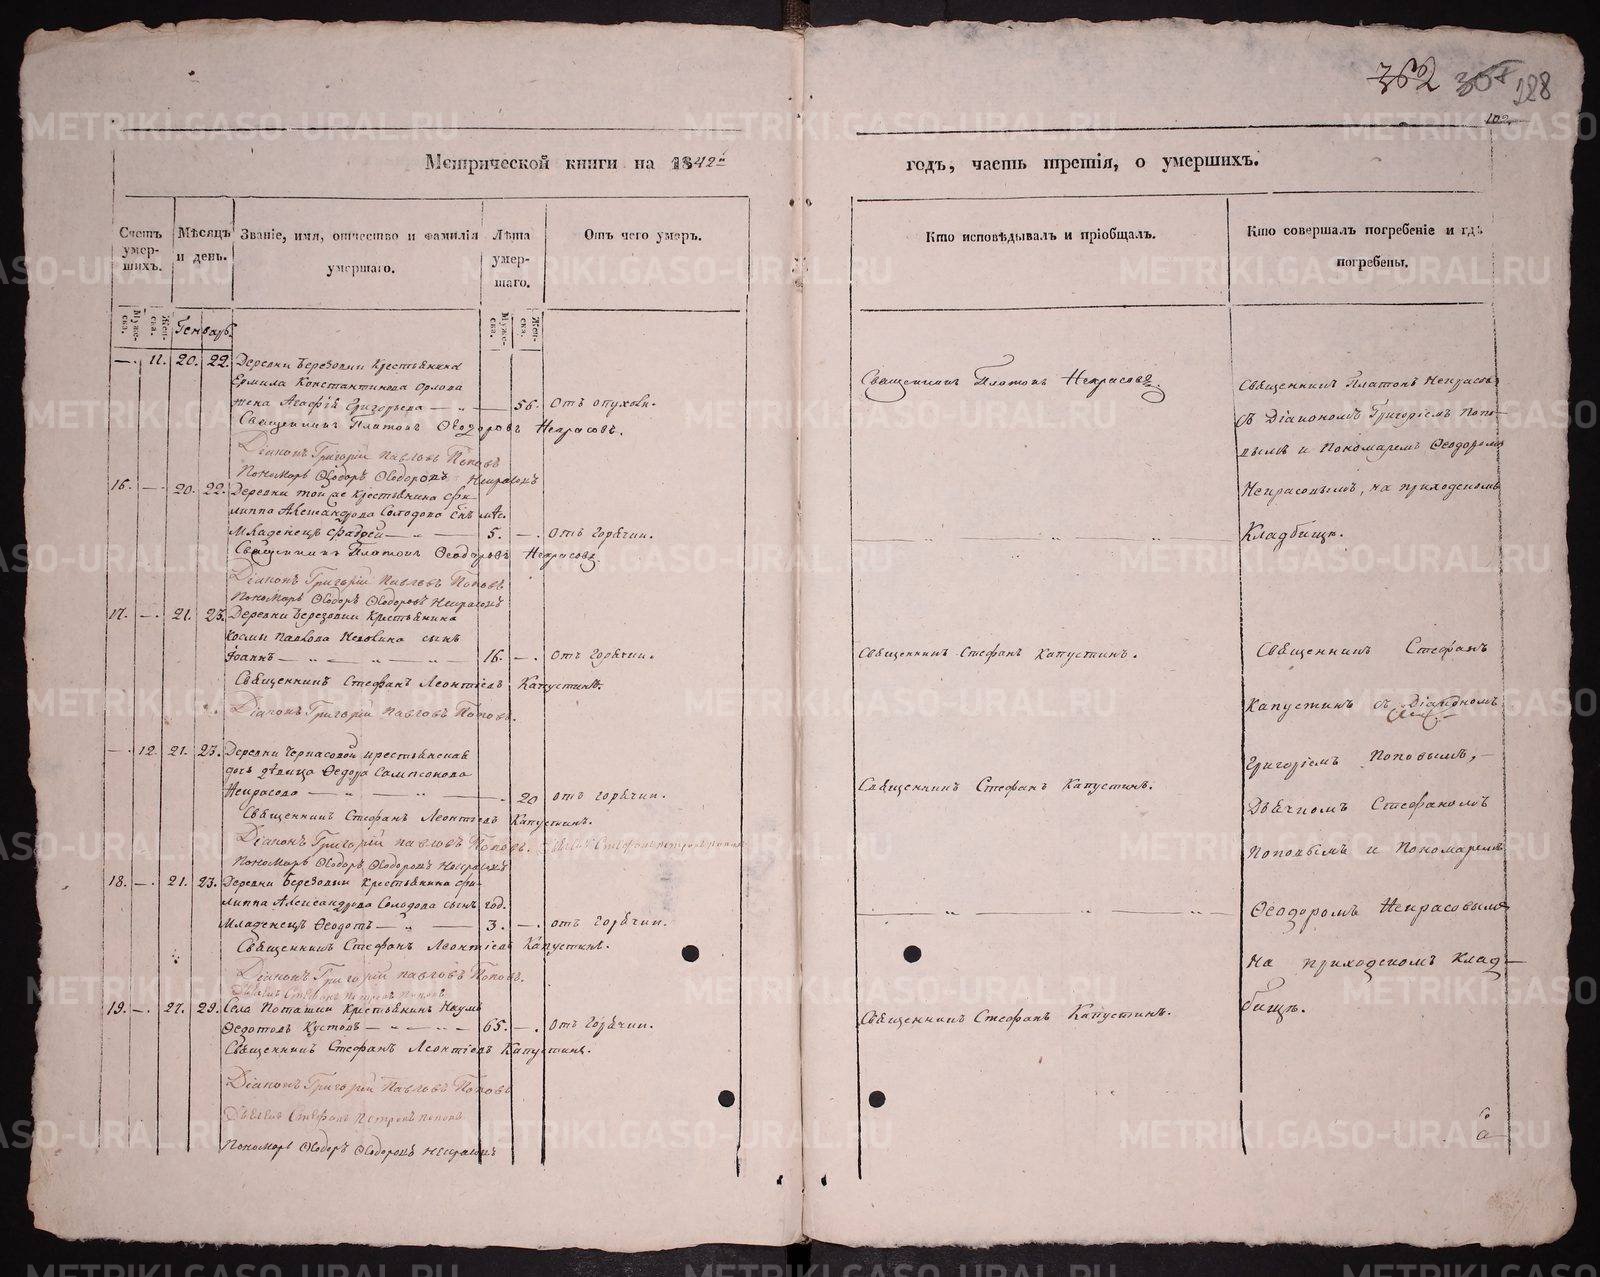 362 307 128
102.
Метрической книги на 1842й годъ, часть третія, о умершихъ.
Счетъ умер-шихъ.
Мѣсяцъ и день.
Званіе, имя, отчество и фамилія умершаго.
Лѣта умер-шаго.
Отъ чего умеръ.
Кто исповѣдывалъ и пріобщалъ.
Кто совершалъ погребеніе и гдѣ погребены.
Муже-ска.
Жен-ска.
Генварь.
Муже-ска.
Жен-ска.
—. 11. 20. 22. Деревни Березовки Крестьянина
Ермила Константинова Орлова
жена Агафія Григорьева — „ — 56. отъ опухоли.
Священникъ Платонъ Ѳеодоровъ Некрасовъ.
Діаконъ Григорій Павловъ Поповъ
Пономарь Ѳеодоръ Ѳеодоровъ Некрасовъ
16. —. 20. 22. Деревни той же Крестьянина Фи-
липпа Александрова Солодова сынъ мѣс.
Младенецъ — „ — 5. —. отъ горячки.
Священникъ Платонъ Ѳеодоровъ Некрасовъ
Діаконъ Григорій Павловъ Поповъ
Пономарь Ѳеодоръ Ѳеодоровъ Некрасовъ
17. —. 21. 23. Деревни Березовки Крестьянина
Козмы Павлова сынъ
Іоаннъ — „ — „ — „ 16. —. отъ горячки.
Священникъ Стефанъ Леонтіевъ Капустинъ.
Діаконъ Григорій Павловъ Поповъ.
—. 12. 21. 23. Деревни Черкасовой крестьянская
дочь дѣвица Ѳедора Сампсонова
Некрасова — „ — „ — . 20 отъ горячки.
Священникъ Стефанъ Леонтіевъ Капустинъ.
Діаконъ Григорій Павловъ Поповъ. Дьячекъ Стефанъ Петровъ Поповъ
Пономарь Ѳеодоръ Ѳеодоровъ Некрасовъ
18. —. 21. 23. Деревни Березовки Крестьянина Фи-
липпа Александрова Солодова сынъ год.
Младенецъ Ѳеодотъ — „ — 3. —. отъ горячки.
Священникъ Стефанъ Леонтіевъ Капустинъ.
Діаконъ Григорій Павловъ Поповъ.
Дьячекъ Стефанъ Петровъ Поповъ
19. —. 27. 29. Села Поташки Крестьянинъ Наумъ
Ѳедотовъ Кустовъ — „ — „ — 65. —. отъ горячки.
Священникъ Стефанъ Леонтіевъ Капустинъ.
Діаконъ Григорій Павловъ Поповъ
Дьячекъ Стефанъ Петровъ Поповъ
Пономарь Ѳеодоръ Ѳеодоровъ Некрасовъ
Священникъ Платонъ Некрасовъ.
Священникъ Стефанъ Капустинъ.
Священникъ Стефанъ Капустинъ.
Священникъ Стефанъ Капустинъ.
Священникъ Платонъ Некрасовъ
съ Діакономъ Григоріемъ Попо-
вымъ и Пономаремъ Ѳеодоромъ
Некрасовымъ, на приходскомъ
Кладбищѣ.
Священникъ Стефанъ
Капустинъ съ Діакономъ
Григоріемъ Поповымъ, —
Дьячкомъ Стефаномъ
Поповымъ и Пономаремъ
Ѳеодоромъ Некрасовымъ
на приходскомъ Клад-
бищѣ.
METRIKI.GASO-URAL.RU